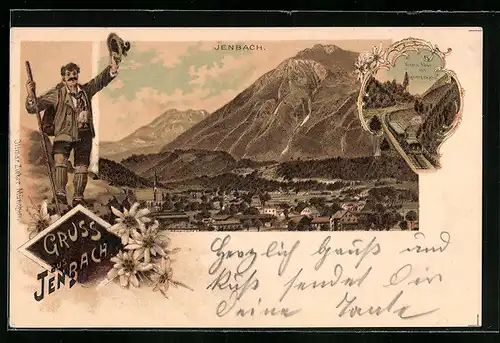 JENBACH.
GRUSS
AUS
JENBACH.
Herzlich Gruß und
Kuß sendet Dir
Deine Tante